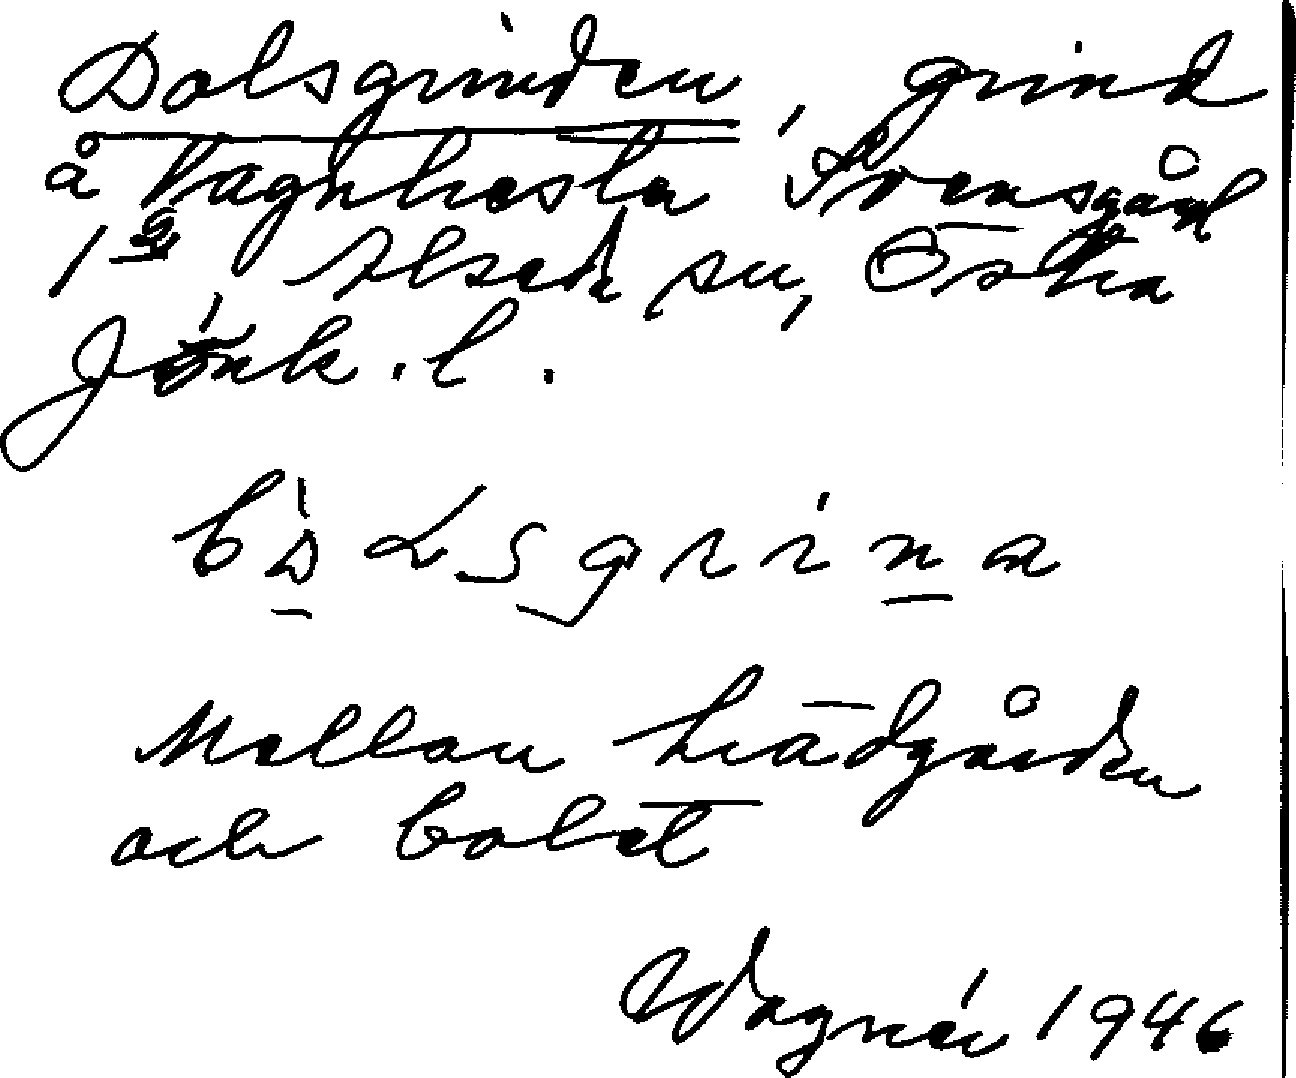 Dalsgrinden, grind
å Vagnhester Svensgård
1:9, Alseda sn, Östra
Jönk. l.
dalsgrina
Mellan trädgården
och bolet
Wagnér 1946